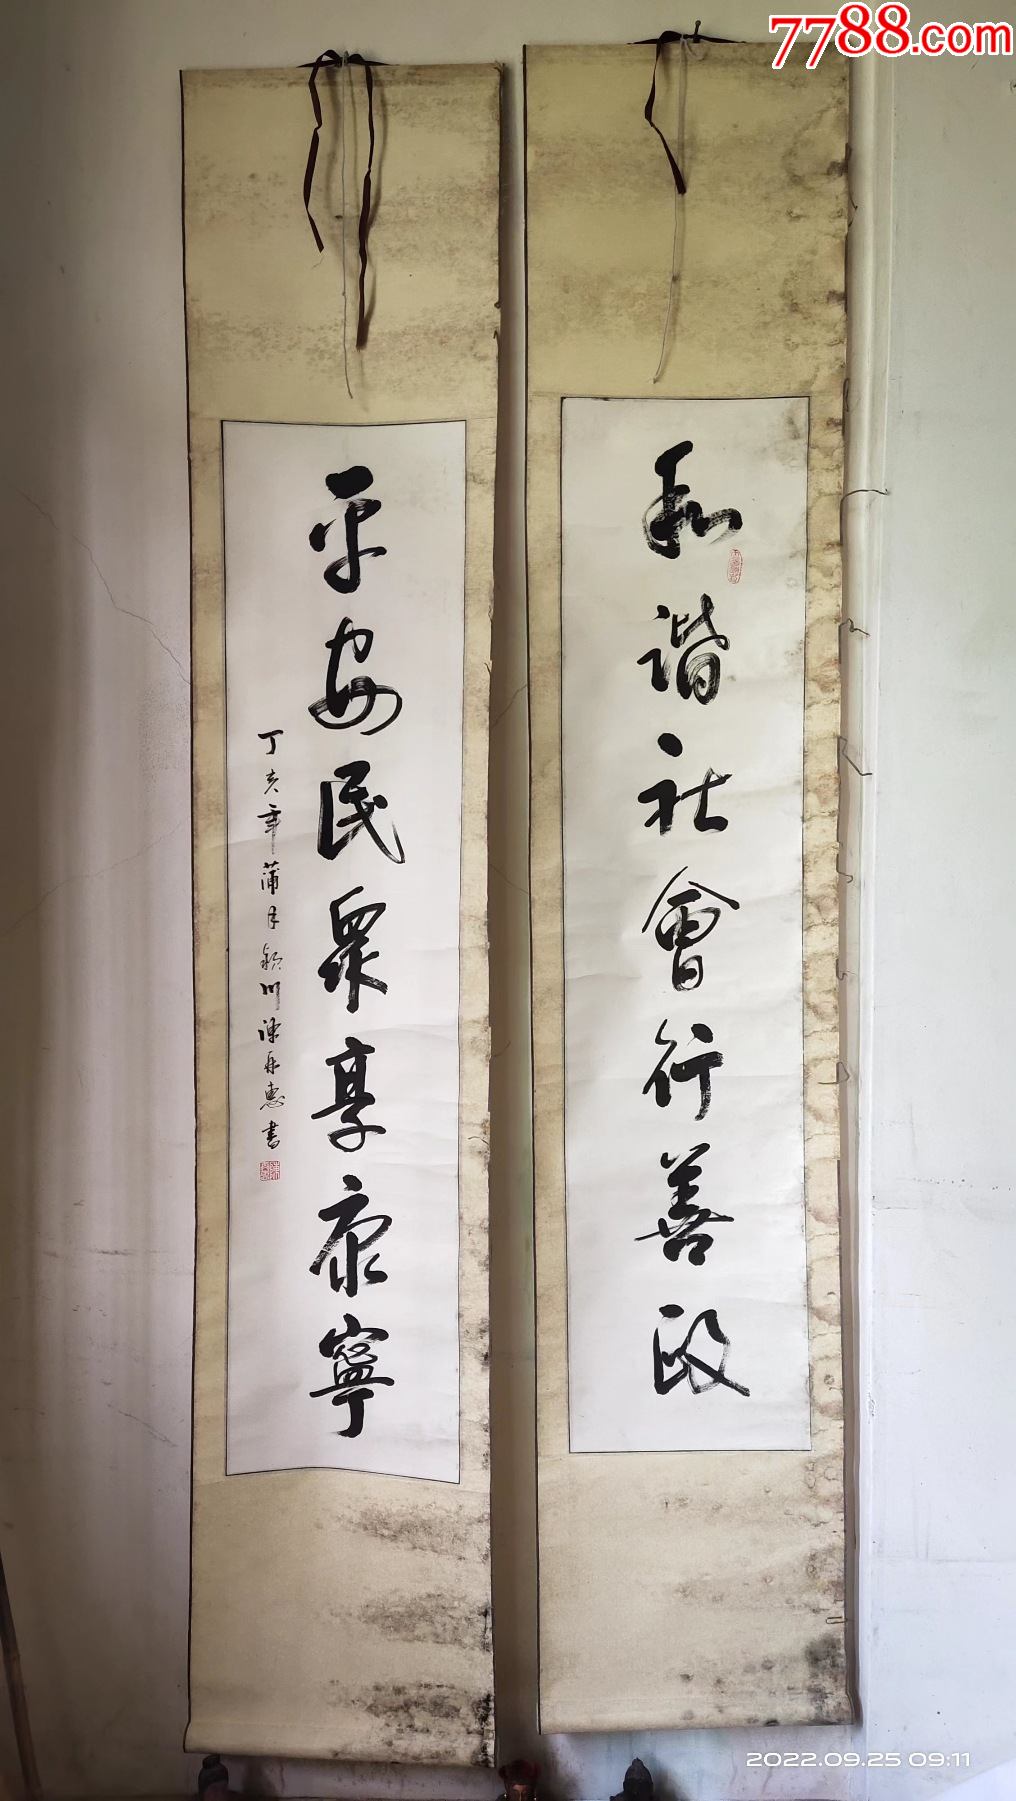 7788.com
和谐社會行善政
平安民眾享康寧
丁亥年蒲月穎川陳永惠書
2022.09.25 09:11